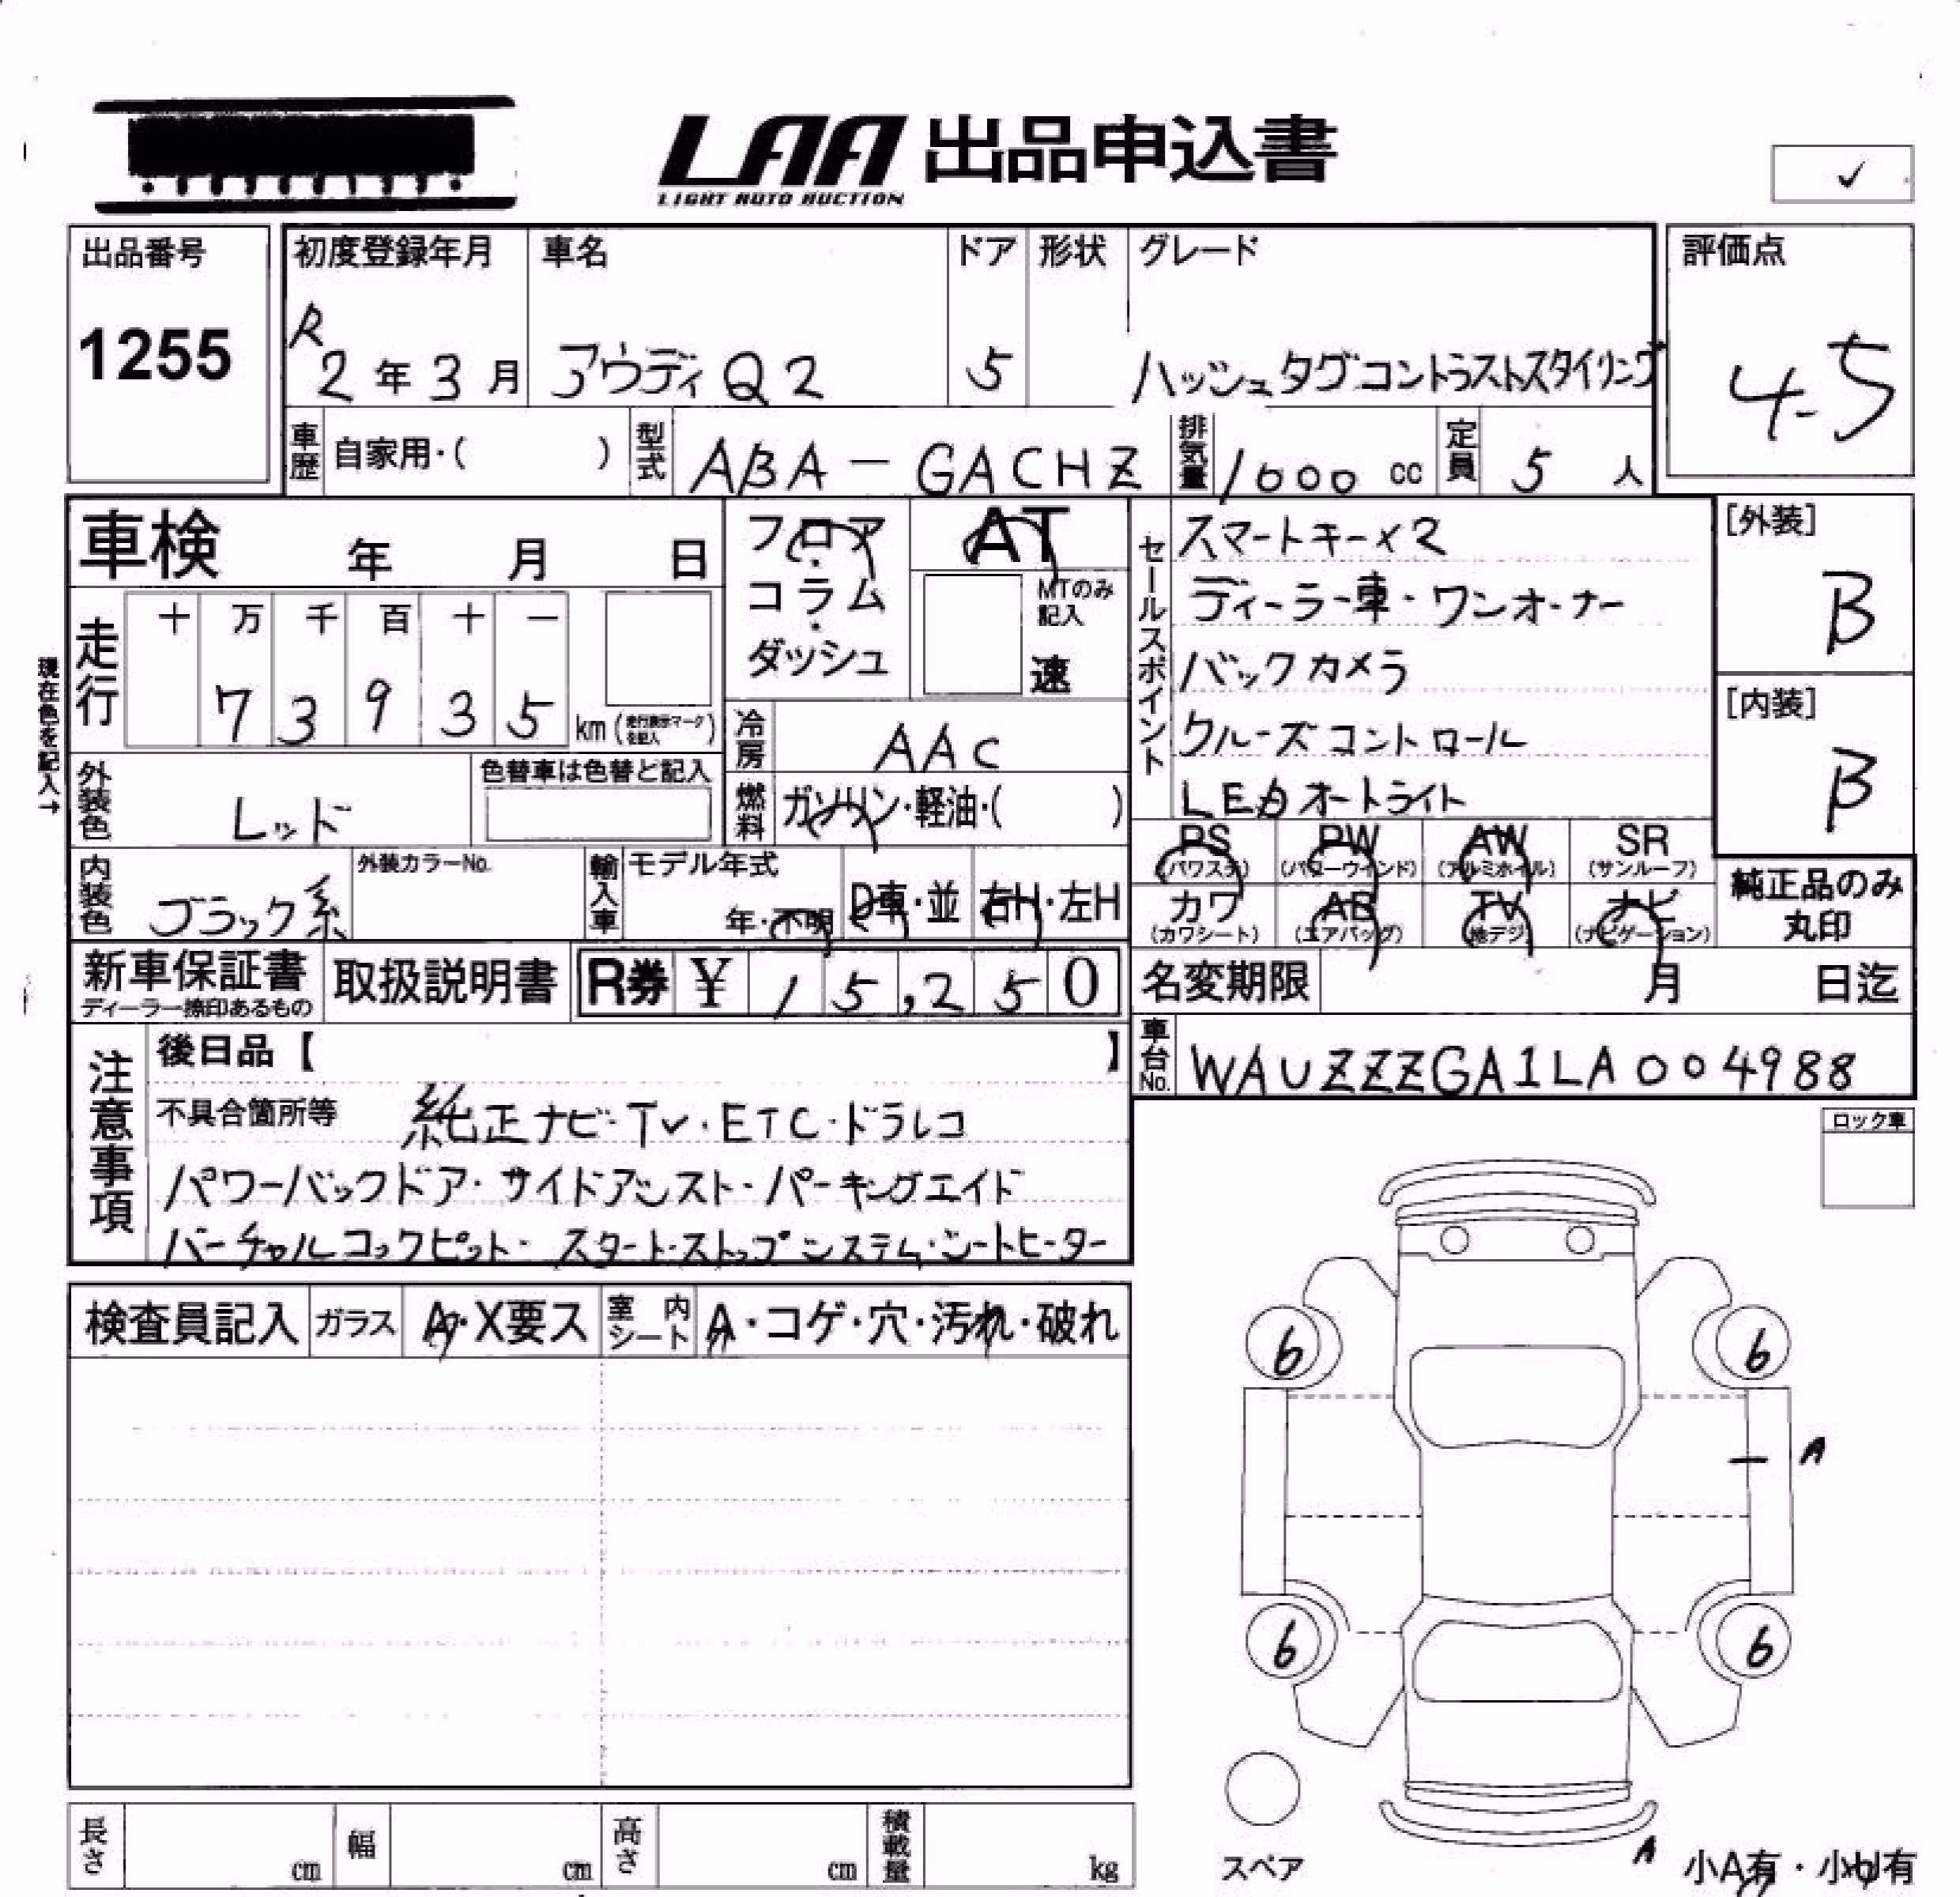 LAA 出品申込書
LIGHT AUTO AUCTION
✓
出品番号
1255
初度登録年月
R
2年3月
車名
アウディQ2
ドア
5
形状
グレード
ハッシュタグコントラストスタイリング
評価点
4.5
車歴 自家用・( )
型式 ABA-GACHZ
排気量 1000 cc
定員 5 人
車検 年 月 日
フロア・コラム・ダッシュ
AT
MTのみ記入
速
セールスポイント
スマートキー×2
ディーラー車・ワンオーナー
バックカメラ
クルーズコントロール
LEDオートライト
[外装]
B
[内装]
B
現在色を記入→
走行 十 万 千 百 十 一
7 3 9 3 5 km (走行表示マークを記入)
冷房 AAC
外装色 レッド
色替車は色替ど記入
燃料 ガソリン・軽油・( )
PS (パワステ)
PW (パワーウインド)
AW (アルミホイル)
SR (サンルーフ)
カワ (カワシート)
AB (エアバッグ)
TV (地デジ)
ナビ (ナビゲーション)
純正品のみ
丸印
内装色 ブラック系
外装カラーNo.
輸入車
モデル年式
年・不明
D車・並
右H・左H
新車保証書
ディーラー捺印あるもの
取扱説明書
R券 ¥ 15,250
名変期限 月 日迄
車台No. WAUZZZGA1LA004988
注意事項
後日品【 】
不具合箇所等 純正ナビ・TV・ETC・ドラレコ
パワーバックドア・サイドアシスト・パーキングエイド
バーチャルコックピット・スタート・ストップシステム・シートヒーター
ロック車
検査員記入
ガラス A・X要ス
室内シート A・コゲ・穴・汚れ・破れ
6
6
A
6
6
スペア
A
小A有・小U有
長さ cm
幅 cm
高さ cm
積載量 kg